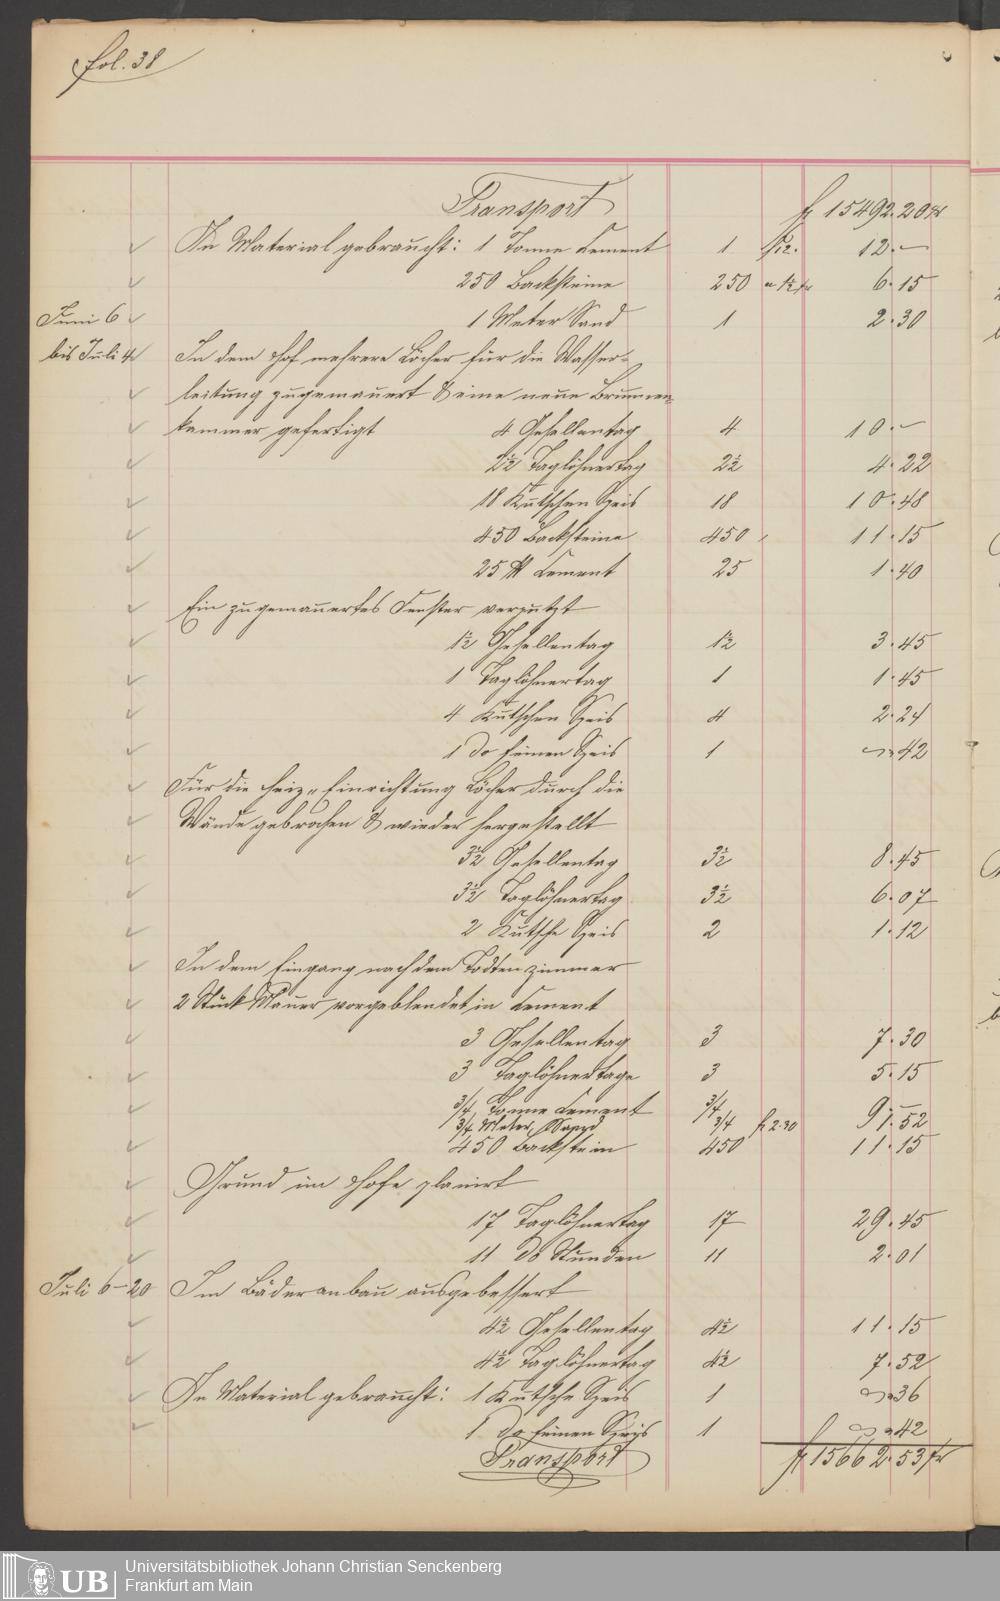 fol. 38
Transport fl 15492. 20 xr
An Material gebraucht: 1 Tonne Cement 1 fl 12. 12. —
250 Backsteine 250 6. 15
Juni 6 1 Meter Sand 1 2. 30
bis Juli 4 In dem Hof mehrere Löcher für die Wasser-
leitung zugemauert & eine neue Brunnen-
kammer gefertigt 4 Gesellentag 4 10. —
2½ Taglöhnertag 2½ 4. 22
18 Kutschen Speis 18 10. 48
450 Backsteine 450 11. 15
25 ℔ Cement 25 1. 40
Ein zugemauertes Fenster verputzt
1½ Gesellentag 1½ 3. 45
1 Taglöhnertag 1 1. 45
4 Kutschen Speis 4 2. 24
1 do feinen Speis 1 — 42
Für die Heiz-Einrichtung Löcher durch die
Wände gebrochen & wieder hergestellt
3½ Gesellentag 3½ 8. 45
3½ Taglöhnertag 3½ 6. 07
2 Kutsche Speis 2 1. 12
In dem Eingang nach dem Todtenzimmer
2 Stück Mauer vorgeblendet in Cement
3 Gesellentag 3 7. 30
3 Taglöhnertage 3 5. 15
3/4 Tonne Cement 3/4 9. —
3/4 Meter Sand 3/4 fl 2.30 1. 52
450 Backstein 450 11. 15
Grund im Hofe planirt
17 Taglöhnertag 17 29. 45
11 do Stunden 11 2. 01
Juli 6–20 Im Bäderanbau ausgebessert
4½ Gesellentag 4½ 11. 15
4½ Taglöhnertag 4½ 7. 52
An Material gebraucht: 1 Kutsche Speis 1 — 36
1 do feinen Speis 1 — 42
Transport fl 15662. 53 xr
UB
Universitätsbibliothek Johann Christian Senckenberg
Frankfurt am Main